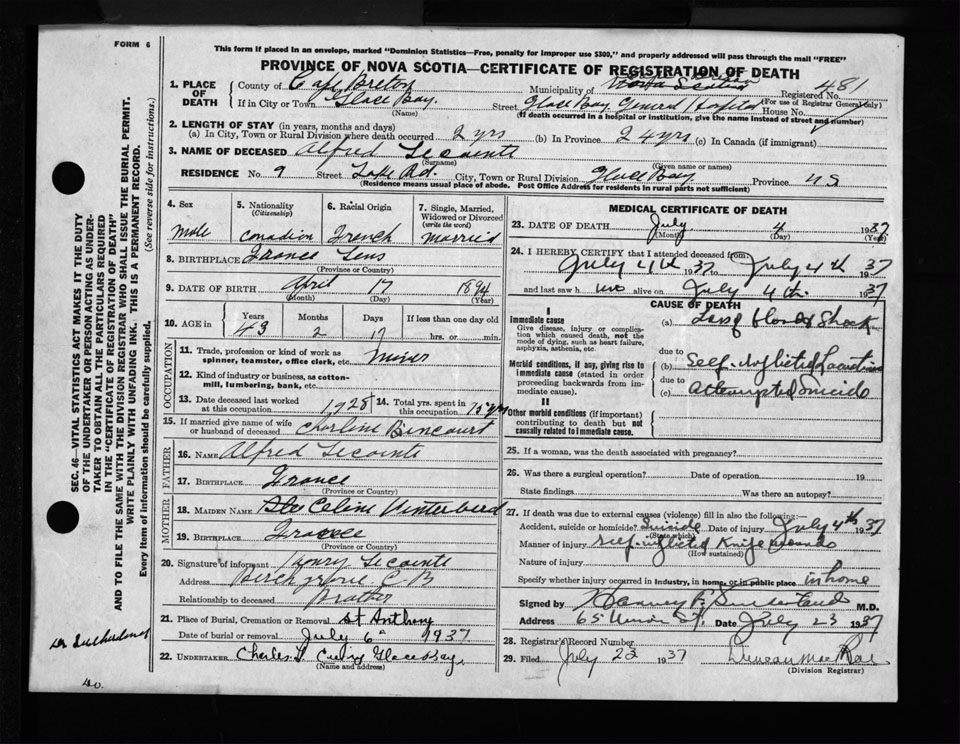 FORM 6
This form if placed in an envelope, marked "Dominion Statistics—Free, penalty for improper use $300," and properly addressed will pass through the mail "FREE"
PROVINCE OF NOVA SCOTIA—CERTIFICATE OF REGISTRATION OF DEATH
SEC. 46—VITAL STATISTICS ACT MAKES IT THE DUTY
OF THE UNDERTAKER OR PERSON ACTING AS UNDER-
TAKER TO OBTAIN ALL THE PARTICULARS REQUIRED
IN THE "CERTIFICATE OF REGISTRATION OF DEATH"
AND TO FILE THE SAME WITH THE DIVISION REGISTRAR WHO SHALL ISSUE THE BURIAL PERMIT.
WRITE PLAINLY WITH UNFADING INK. THIS IS A PERMANENT RECORD.
Every item of information should be carefully supplied. (See reverse side for instructions.)
1. PLACE OF DEATH
County of Cape Breton Municipality of Registered No. 481
(For use of Registrar General only)
If in City or Town Glace Bay. Street Glace Bay General Hospital House No.
(Name) (If death occurred in a hospital or institution, give the name instead of street and number)
2. LENGTH OF STAY (in years, months and days)
(a) In City, Town or Rural Division where death occurred 2 yrs (b) In Province 24 yrs (c) In Canada (if immigrant)
3. NAME OF DECEASED Alfred Lecointe
(Surname) (Given name or names)
RESIDENCE No. 9 Street Lake Rd. City, Town or Rural Division Glace Bay Province NS
(Residence means usual place of abode. Post Office Address for residents in rural parts not sufficient)
4. Sex Male
5. Nationality (Citizenship) Canadian
6. Racial Origin French
7. Single, Married, Widowed or Divorced (write the word) Married
8. BIRTHPLACE France Lens
(Province or Country)
9. DATE OF BIRTH April 17 1894
(Month) (Day) (Year)
10. AGE in Years 43 Months 2 Days 17 If less than one day old hrs. or min.
OCCUPATION
11. Trade, profession or kind of work as spinner, teamster, office clerk, etc. Miner
12. Kind of industry or business, as cotton-mill, lumbering, bank, etc.
13. Date deceased last worked at this occupation 1928 14. Total yrs. spent in this occupation 15 yrs
15. If married give name of wife or husband of deceased Charline Bincourt
FATHER
16. NAME Alfred Lecointe
17. BIRTHPLACE France
(Province or Country)
MOTHER
18. MAIDEN NAME Celine
19. BIRTHPLACE France
(Province or Country)
20. Signature of informant Henry Lecointe
Address Birchgrove C B
Relationship to deceased Brother
21. Place of Burial, Cremation or Removal St Anthony
Date of burial or removal July 6 1937
22. UNDERTAKER Charles Glace Bay
(Name and address)
MEDICAL CERTIFICATE OF DEATH
23. DATE OF DEATH July 4 1937
(Month) (Day) (Year)
24. I HEREBY CERTIFY that I attended deceased from
July 4th 1937 to July 4th 1937
and last saw h im alive on July 4th 1937
CAUSE OF DEATH
I
Immediate cause
Give disease, injury or complication which caused death, not the mode of dying, such as heart failure, asphyxia, asthenia, etc.
(a) Loss of blood & Shock
due to
Morbid conditions, if any, giving rise to immediate cause (stated in order proceeding backwards from immediate cause).
(b) Self inflicted Lacerations
due to
(c) attempted Suicide
II
Other morbid conditions (if important) contributing to death but not causally related to immediate cause.
25. If a woman, was the death associated with pregnancy?
26. Was there a surgical operation? Date of operation 19
State findings Was there an autopsy?
27. If death was due to external causes (violence) fill in also the following:—
Accident, suicide or homicide? Suicide Date of injury July 4th 1937
(State which)
Manner of injury self inflicted Knife wounds
(How sustained)
Nature of injury
Specify whether injury occurred in industry, in home, or in public place in home
Signed by Harvey F. Sutherland M.D.
Address 65 Union St. Date July 23 1937
28. Registrar's Record Number
29. Filed July 22 1937 Duncan MacRae
(Division Registrar)